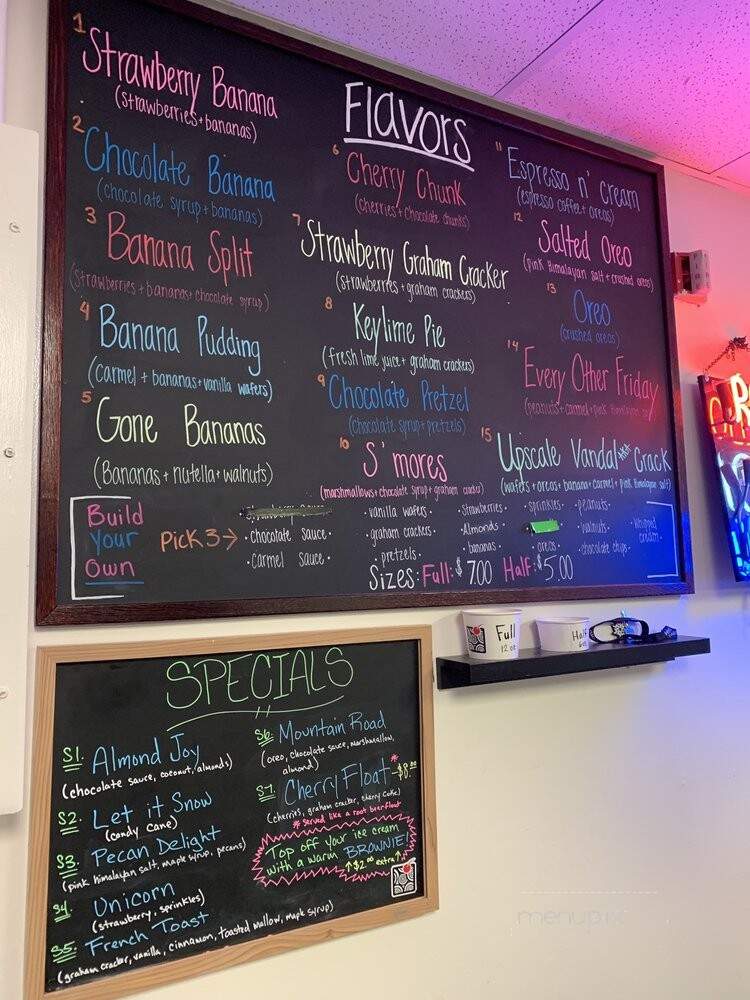 Flavors
1 Strawberry Banana
(strawberries + bananas)
2 Chocolate Banana
(chocolate syrup + bananas)
3 Banana Split
(strawberries + bananas + chocolate syrup)
4 Banana Pudding
(carmel + bananas + vanilla wafers)
5 Gone Bananas
(Bananas + nutella + walnuts)
6 Cherry Chunk
(cherries + chocolate chunks)
7 Strawberry Graham Cracker
(strawberries + graham crackers)
8 Keylime Pie
(fresh lime juice + graham crackers)
9 Chocolate Pretzel
(chocolate syrup + pretzels)
10 S'mores
(marshmallows + chocolate syrup + graham cracker)
11 Espresso n' cream
(espresso coffee + oreos)
12 Salted Oreo
(pink Himalayan salt + crushed oreos)
13 Oreo
(crushed oreos)
14 Every Other Friday
(peanuts + carmel + pink Himalayan salt)
15 Upscale Vandal Crack
(wafers + oreos + banana + carmel + pink Himalayan salt)
Build
Your
Own
Pick 3 →
• chocolate sauce •
• carmel sauce •
vanilla wafers •
graham crackers •
pretzels •
• strawberries •
Almonds •
bananas •
sprinkles •
oreos •
peanuts •
walnuts •
chocolate chips •
whipped
cream
Sizes: Full: $7.00 Half: $5.00
Full
12 oz
Half
6 oz
SPECIALS
S1. Almond Joy
(chocolate sauce, coconut, almonds)
S2. Let it Snow
(candy cane)
S3. Pecan Delight
(pink himalayan salt, maple syrup, pecans)
S4. Unicorn
(strawberry, sprinkles)
S5. French Toast
(graham cracker, vanilla, cinnamon, toasted mallow, maple syrup)
S6. Mountain Road
(oreo, chocolate sauce, marshmallow,
almond)
S7. Cherry Float* - $8.00
(cherries, graham cracker, cherry coke)
* Served like a root beer float
Top off your ice cream
with a warm BROWNIE!
↑ $2.00 extra ↑
menupix